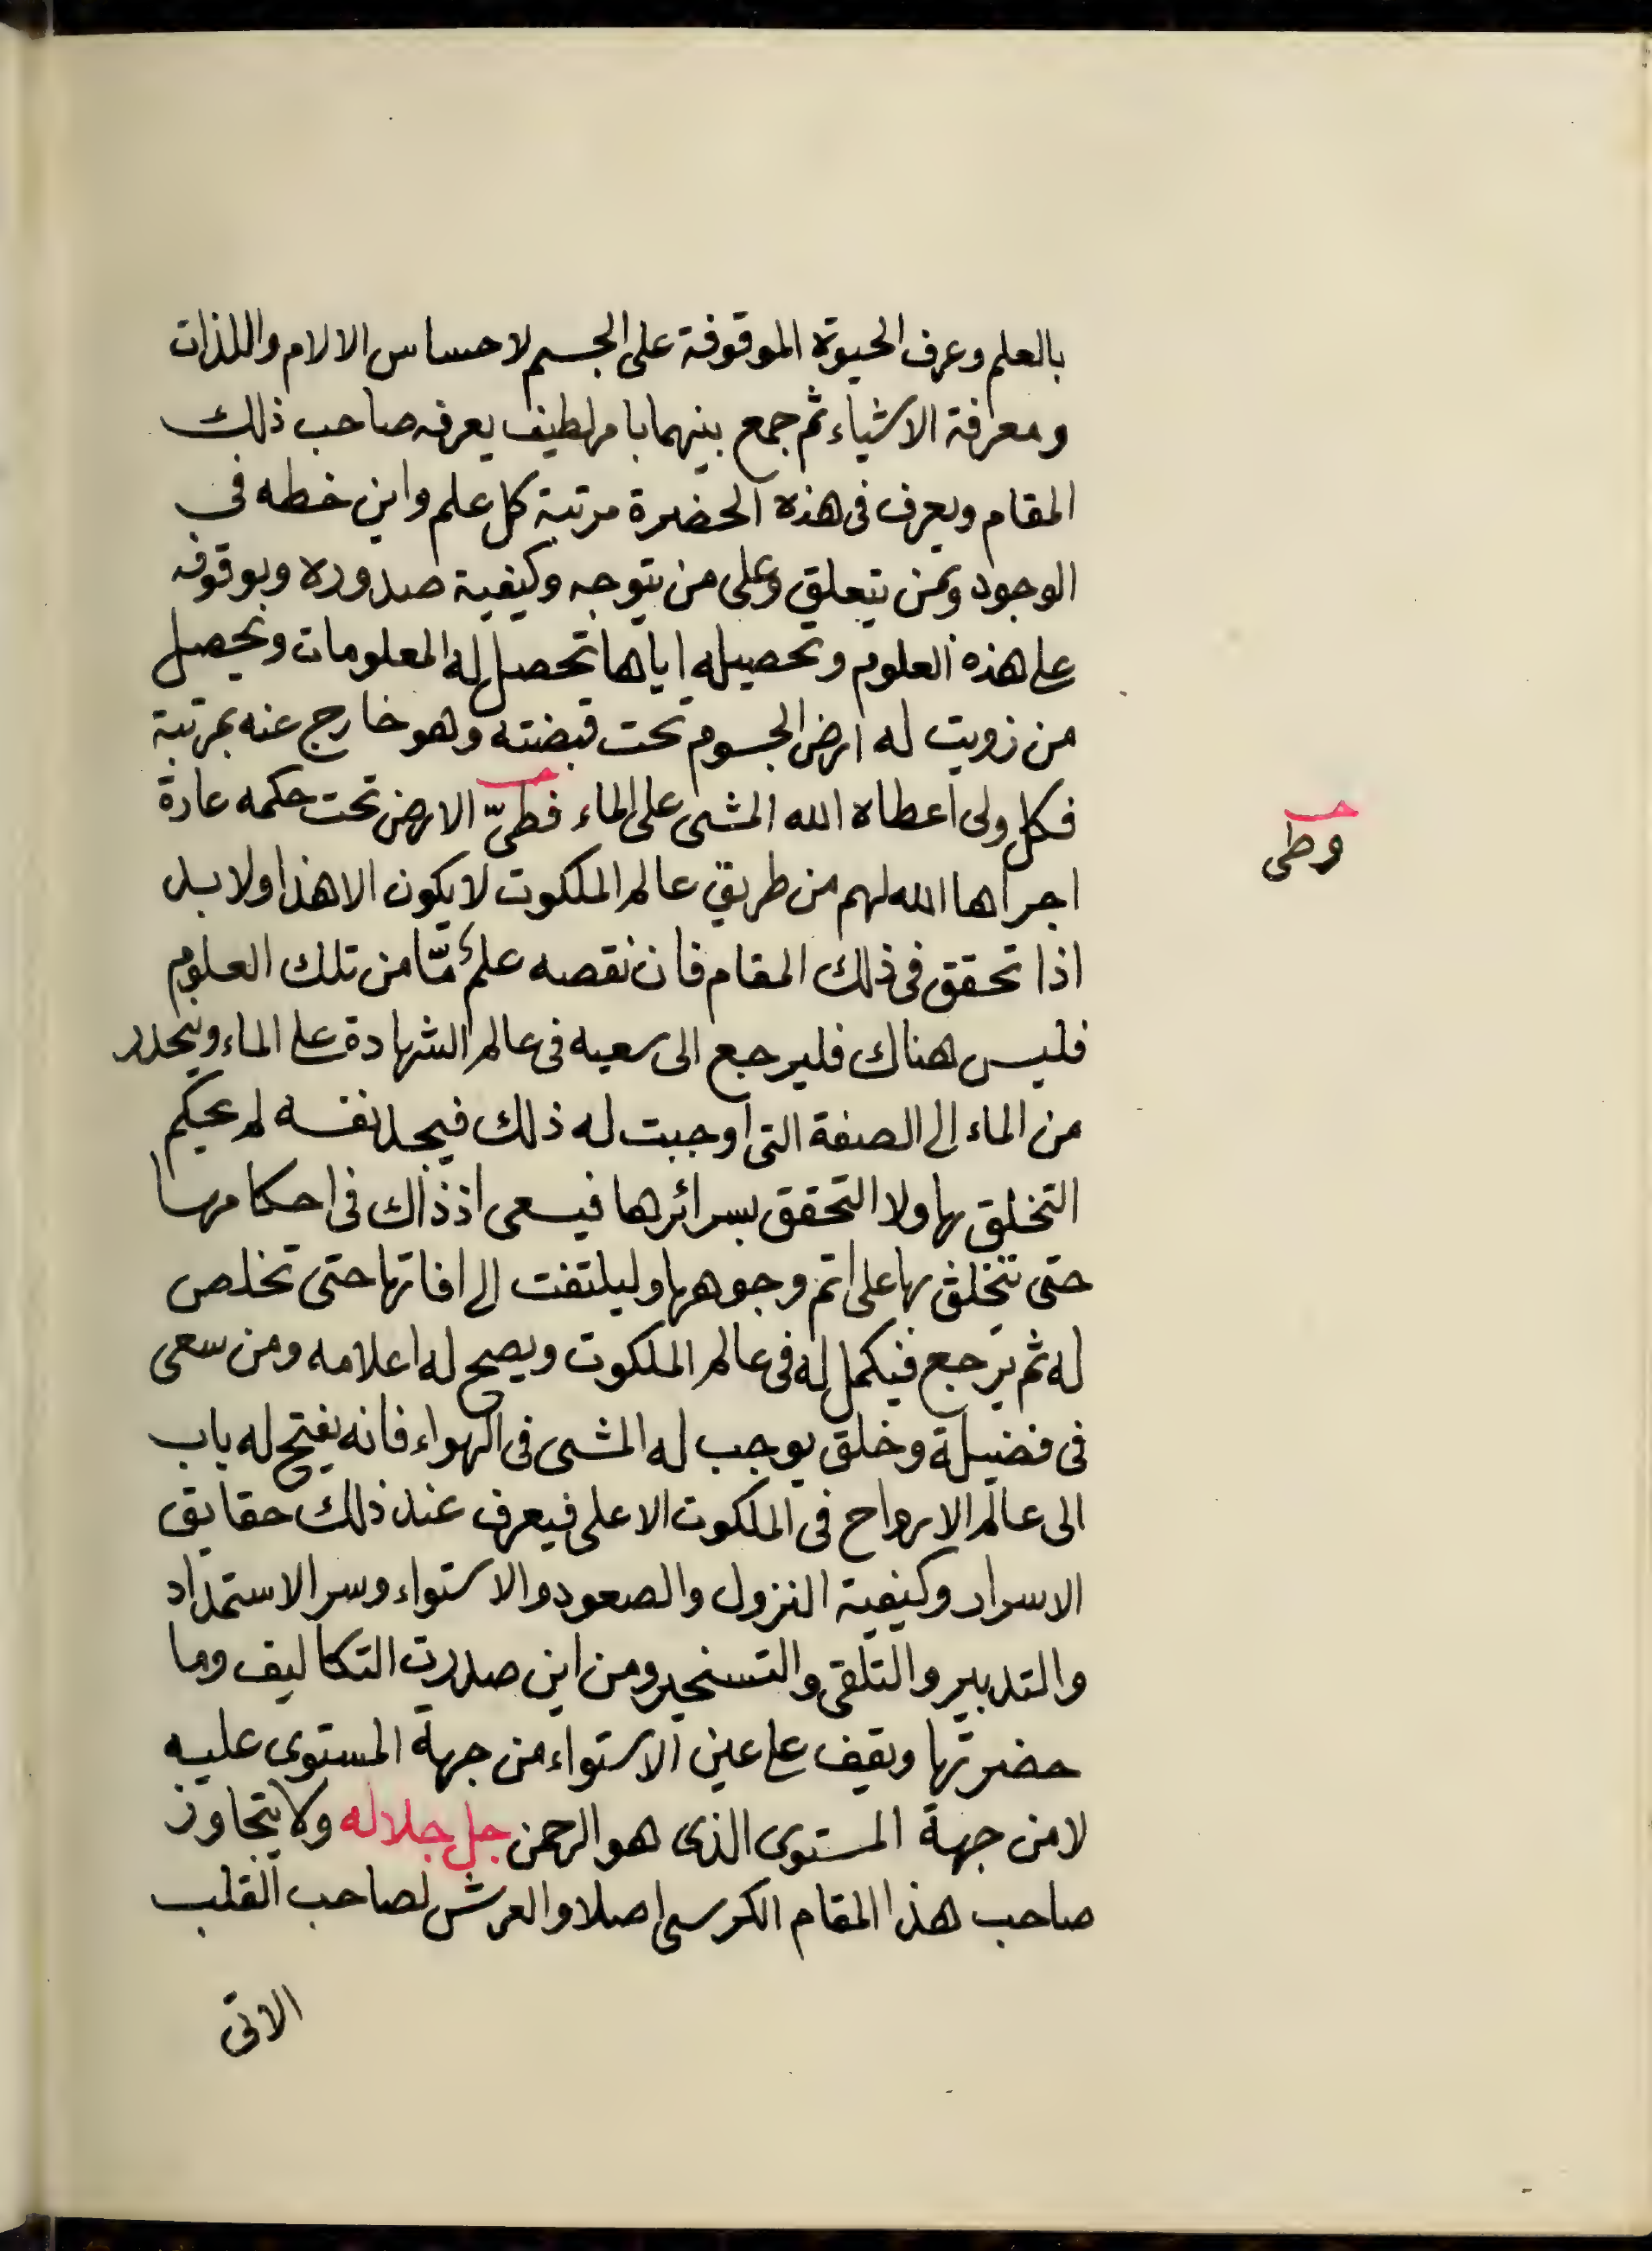 بالعلم وعرف الحيوة الموقوفة على الجسم لاحساس الالام واللذات
ومعرفة الاشياء ثم جمع بينهما بامر لطيف يعرفه صاحب ذلك
المقام ويعرف فى هذه الحضرة مرتبة كل علم واين خطه فى
الوجود وبمن يتعلق وعلى من يتوجه وكيفية صدوره وبوقوفه
على هذه العلوم وتحصيله اياها تحصل له المعلومات وتحصل
من زويت له ارض الجسوم تحت قبضته وهو خارج عنه بمرتبة
فكل ولى اعطاه الله المشى على الماء فطىّ الارض تحت حكمه عادة
وطى
اجراها الله لهم من طريق عالم الملكوت لا يكون الا هذا ولا بد
اذا تحقق فى ذلك المقام فان نقصه علمٌ مّا من تلك العلوم
فليس هناك فليرجع الى سعيه فى عالم الشهادة على الماء وينحدر
من الماء الى الصفة التى اوجبت له ذلك فيجد نفسه لم يحكم
التخلق بها ولا التحقق بسرائرها فيسعى اذ ذاك فى احكامها
حتى يتخلق بها على اتم وجوهها وليلتفت الى افاتها حتى تخلص
له ثم يرجع فيكمل له فى عالم الملكوت ويصح له اعلامه ومن سعى
فى فضيلة وخلق يوجب له المشى فى الهواء فانه يفتح له باب
الى عالم الارواح فى الملكوت الاعلى فيعرف عند ذلك حقايق
الاسرار وكيفية النزول والصعود والاستواء وسر الاستمداد
والتدبير والتلقى والتسخير ومن اين صدرت التكاليف وما
حضرتها ويقف على عين الاستواء من جهة المستوى عليه
لا من جهة المستوى الذى هو الرحمن جل جلاله ولا يتجاوز
صاحب هذا المقام الكرسى اصلا والعرش لصاحب القلب
الاتى